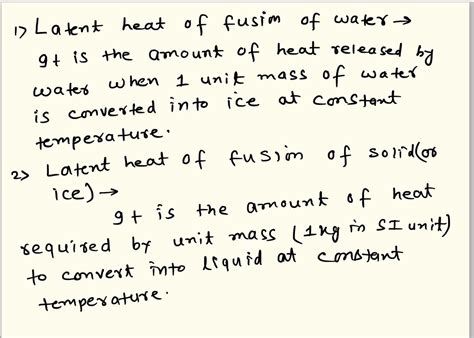 1) Latent heat of fusion of water →
gt is the amount of heat released by
water when 1 unit mass of water
is converted into ice at constant
temperature.
2) Latent heat of fusion of solid(or
ice) →
gt is the amount of heat
required by unit mass (1kg in SI unit)
to convert into liquid at constant
temperature.